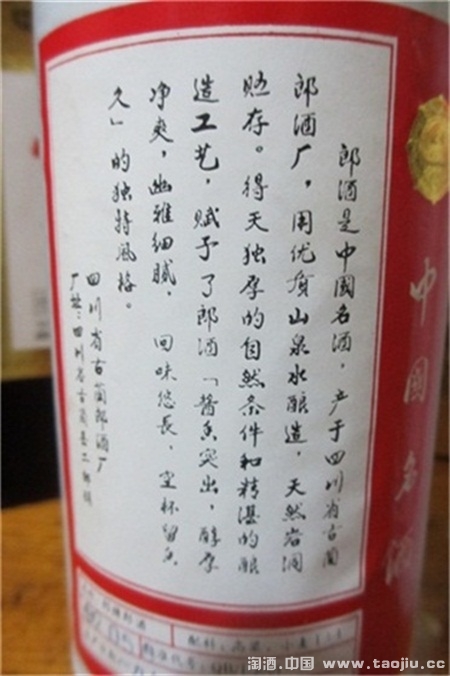 中国名酒
郎酒是中國名酒，产于四川省古蔺
郎酒厂，用优质山泉水酿造，天然岩洞
贮存。得天独厚的自然条件和精湛的酿
造工艺，赋予了郎酒「酱香突出，醇厚
净爽，幽雅细腻，回味悠长，空杯留香
久」的独特風格。
四川省古蔺郎酒厂
厂址：四川省古蔺县二郎镇
配料：高粱、小麦
标准代号：
淘酒.中国 www.taojiu.cc